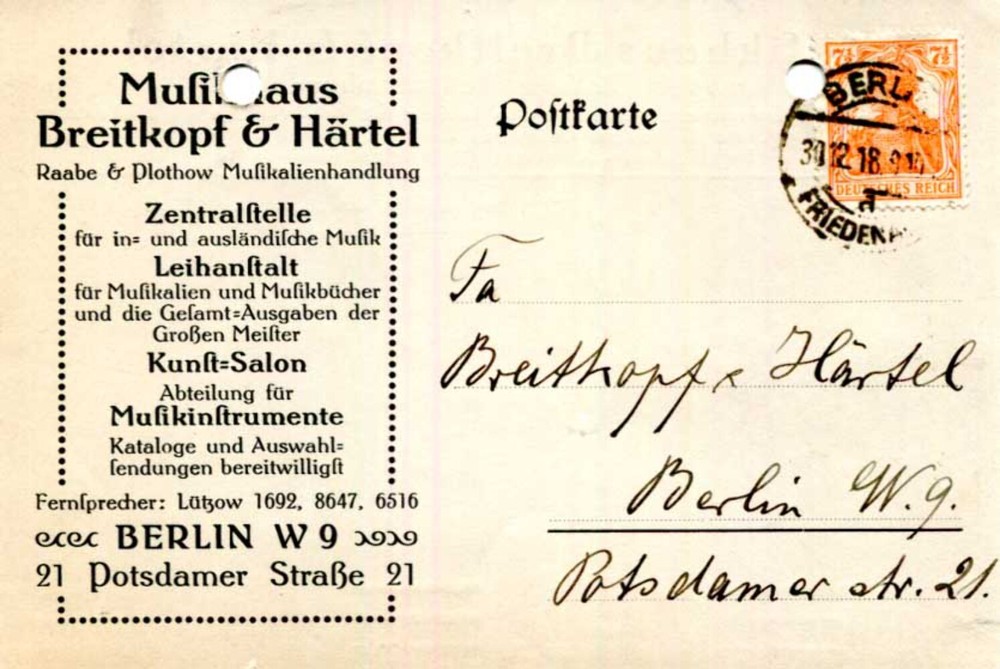 Muſikhaus
Breitkopf & Härtel
Raabe & Plothow Muſikalienhandlung
Zentralſtelle
für in= und ausländiſche Muſik
Leihanſtalt
für Muſikalien und Muſikbücher
und die Geſamt=Ausgaben der
Großen Meiſter
Kunſt=Salon
Abteilung für
Muſikinſtrumente
Kataloge und Auswahl=
ſendungen bereitwilligſt
Fernſprecher: Lützow 1692, 8647, 6516
BERLIN W 9
21 Potsdamer Straße 21
Poſtkarte
7½ 7½
DEUTSCHES REICH
BERL
30.12.18.
a
FRIEDEN
Fa
Breitkopf & Härtel
Berlin W. 9.
Potsdamer str. 21.